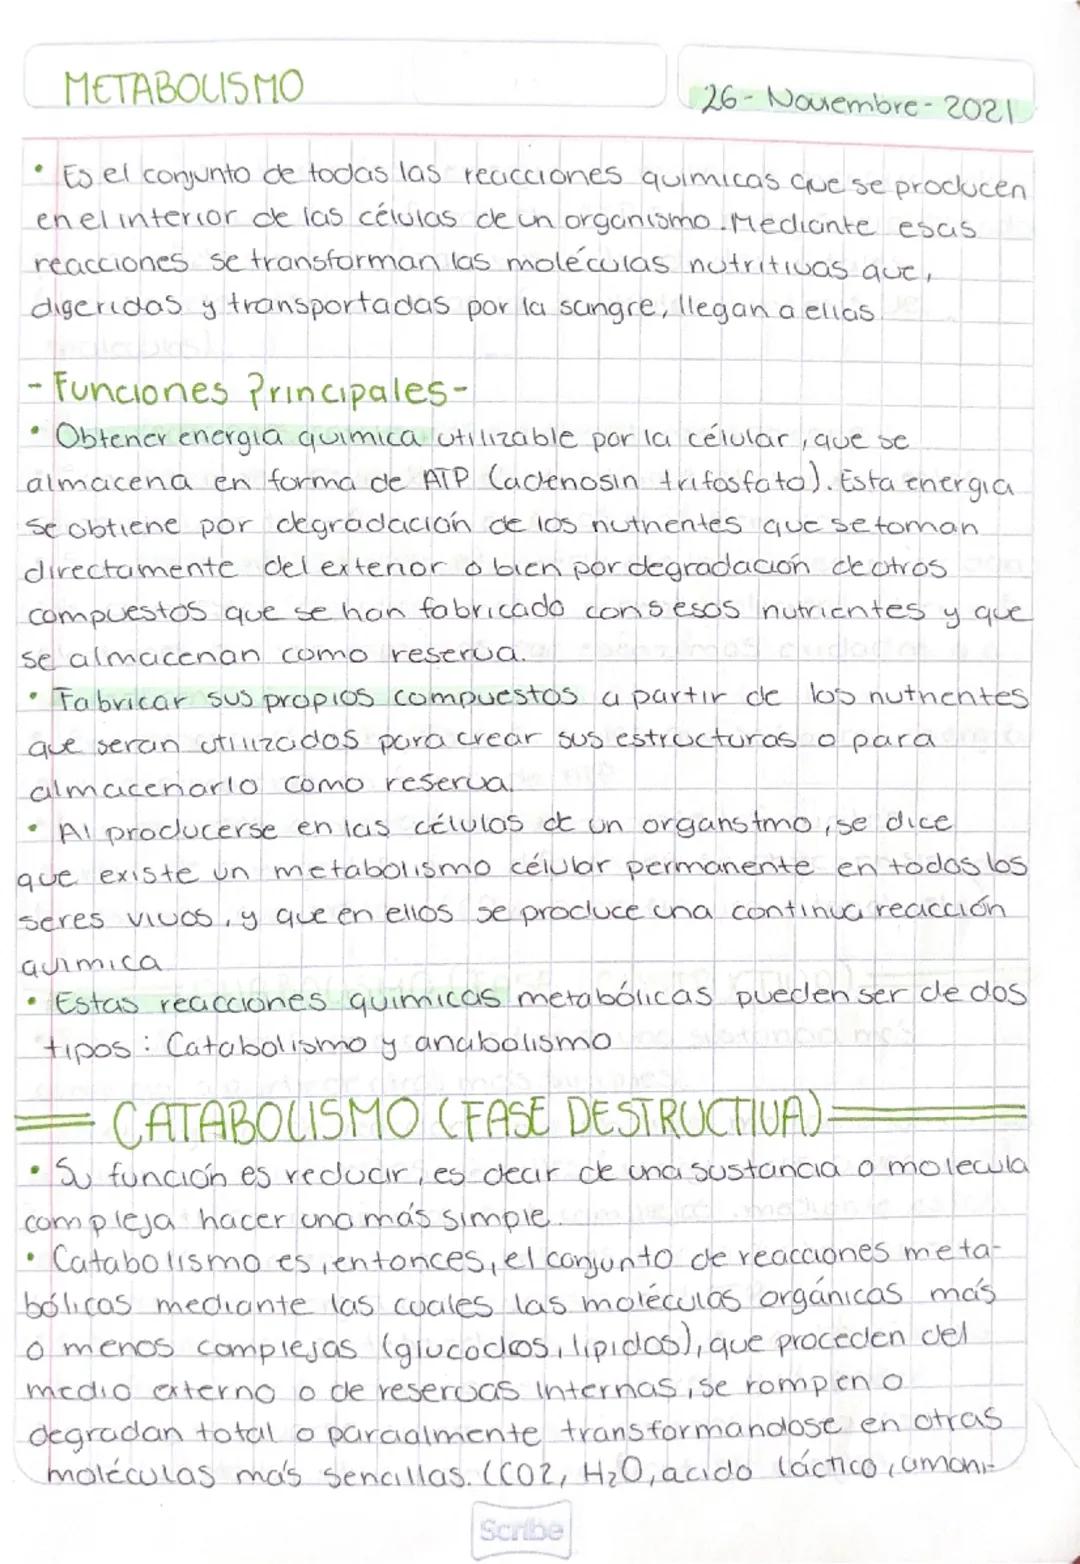 METABOLISMO
26- Noviembre- 2021
• Es el conjunto de todas las reacciones químicas que se producen
en el interior de las células de un organismo. Mediante esas
reacciones se transforman las moléculas nutritivas que,
digeridas y transportadas por la sangre, llegan a ellas.
- Funciones Principales-
• Obtener energia química utilizable por la célular, que se
almacena en forma de ATP (adenosin trifosfato). Esta energia
se obtiene por degradación de los nutrientes que se toman
directamente del exterior o bien por degradación de otros
compuestos que se han fabricado cons esos nutrientes y que
se almacenan como reserva.
• Fabricar sus propios compuestos a partir de los nutrientes
que seran utilizados para crear sus estructuras o para
almacenarlo como reserva
• Al producerse en las células de un organstmo, se dice
que existe un metabolismo célular permanente en todos los
seres vivos, y que en ellos se produce una continua reacción
química
• Estas reacciones químicas metabólicas pueden ser de dos
tipos: Catabolismo y anabolismo
CATABOLISMO (FASE DESTRUCTIVA)
• Su función es reducir, es decir de una sustancia o molecula
compleja hacer una más simple.
• Catabolismo es, entonces, el conjunto de reacciones meta-
bólicas mediante las cuales las moléculas orgánicas más
o menos complejas (glucodos, lipidos), que proceden del
medio externo o de reservas internas, se rompen o
degradan total o parcialmente transformandose en otras
moléculas más sencillas. (CO2, H2O, acido láctico, amoni-
Scribe